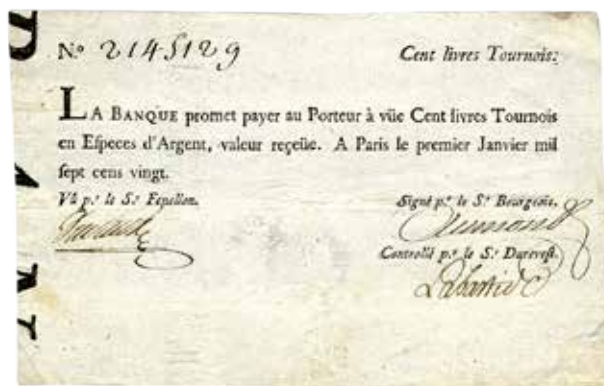 N.º 2145129 Cent livres Tournois:
LA BANQUE promet payer au Porteur à vûe Cent livres Tournois
en Especes d'Argent, valeur reçeüe. A Paris le premier Janvier mil
sept cens vingt.
Vû p.r le S.r Fenellon. Signé p.r le S.r Bourgeois.
Controllé p.r le S.r Durevest.